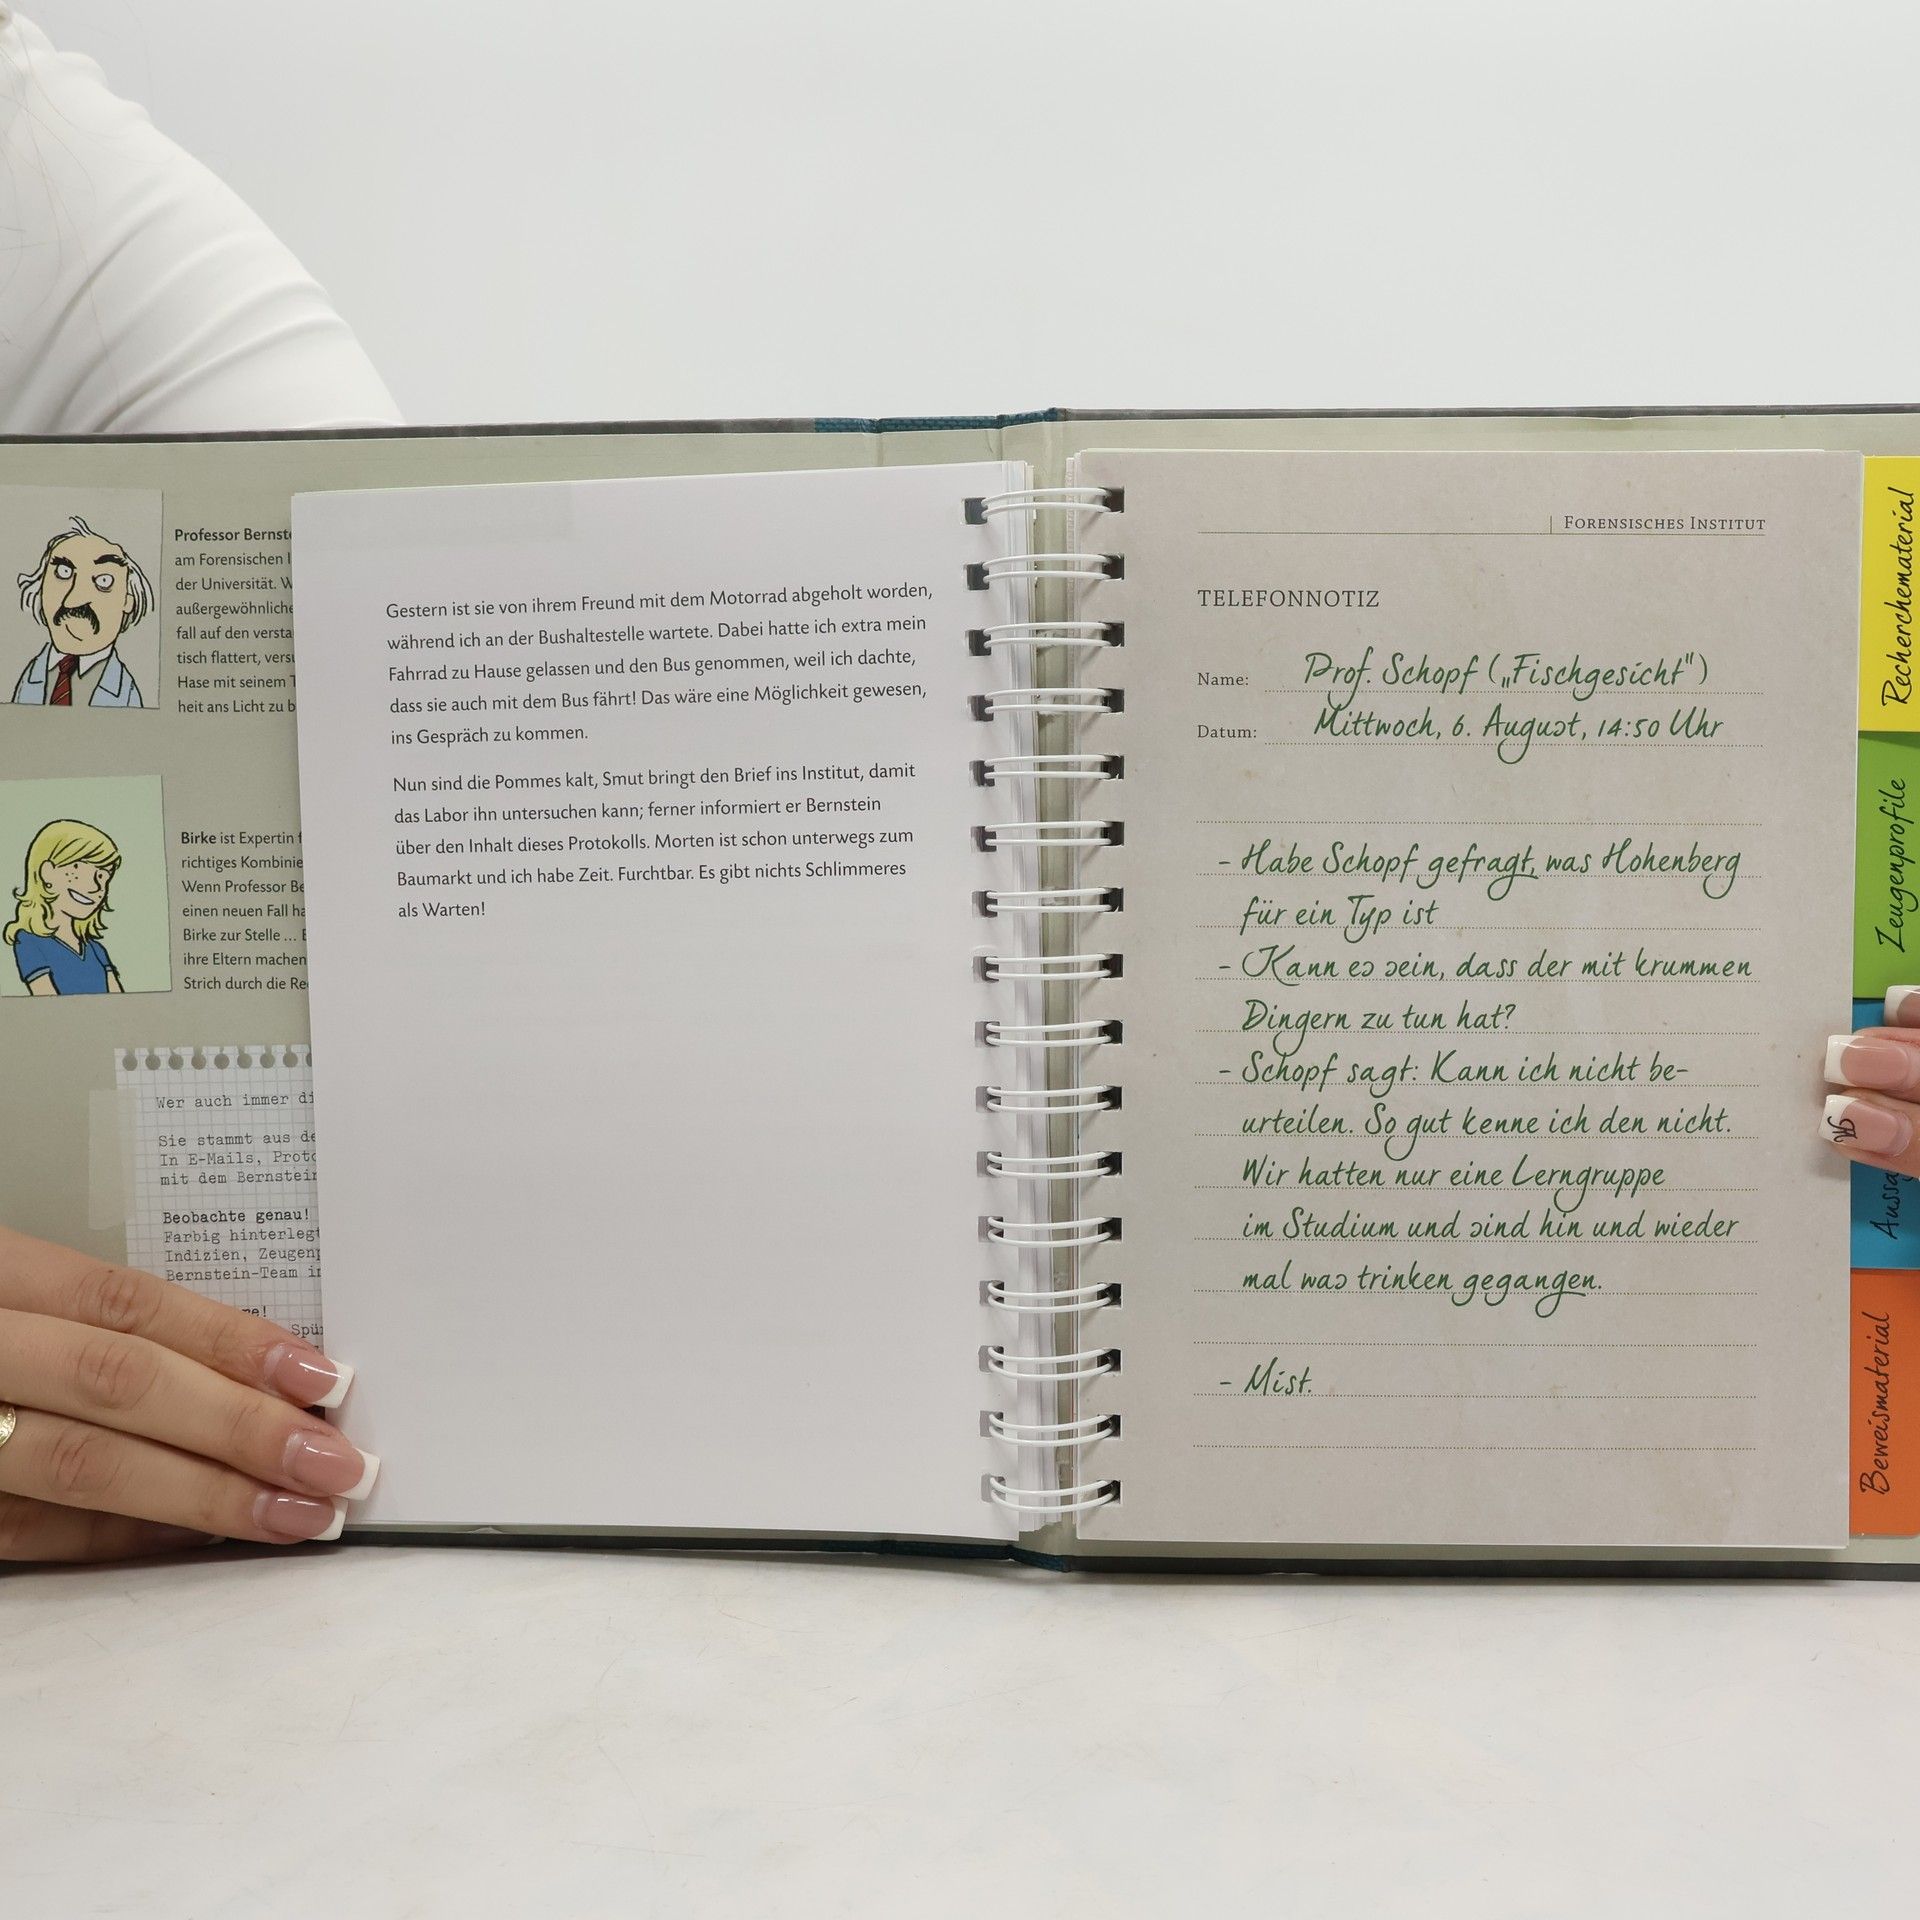 Professor
am Forensischen
der Universität.
außergewöhnliche
fall auf den
tisch flattert,
Hase mit seinem
heit ans Licht zu
Birke ist Expertin
richtiges
Wenn Professor
einen neuen Fall
Birke zur Stelle …
ihre Eltern machen
Strich durch die
Wer auch immer
Sie stammt aus
In E-Mails,
mit dem Bernstein
Beobachte genau!
Farbig
Indizien,
Bernstein-Team
Gestern ist sie von ihrem Freund mit dem Motorrad abgeholt worden,
während ich an der Bushaltestelle wartete. Dabei hatte ich extra mein
Fahrrad zu Hause gelassen und den Bus genommen, weil ich dachte,
dass sie auch mit dem Bus fährt! Das wäre eine Möglichkeit gewesen,
ins Gespräch zu kommen.
Nun sind die Pommes kalt, Smut bringt den Brief ins Institut, damit
das Labor ihn untersuchen kann; ferner informiert er Bernstein
über den Inhalt dieses Protokolls. Morten ist schon unterwegs zum
Baumarkt und ich habe Zeit. Furchtbar. Es gibt nichts Schlimmeres
als Warten!
FORENSISCHES INSTITUT
TELEFONNOTIZ
Name: Prof. Schopf („Fischgesicht")
Datum: Mittwoch, 6. August, 14:50 Uhr
- Habe Schopf gefragt, was Hohenberg
für ein Typ ist
- Kann es sein, dass der mit krummen
Dingern zu tun hat?
- Schopf sagt: Kann ich nicht be-
urteilen. So gut kenne ich den nicht.
Wir hatten nur eine Lerngruppe
im Studium und sind hin und wieder
mal was trinken gegangen.
- Mist.
Recherchematerial
Zeugenprofile
Beweismaterial